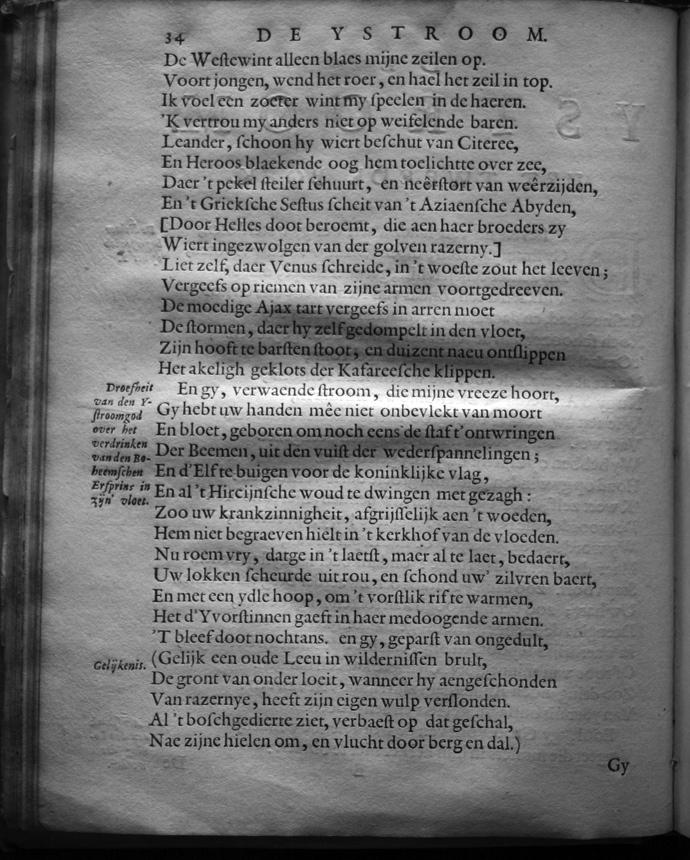 34 DE YSTROOM.
De Westewint alleen blaes mijne zeilen op.
Voort jongen, wend het roer, en hael het zeil in top.
Ik voel een zoeter wint my speelen in de haeren.
'K vertrou my anders niet op weifelende baren.
Leander, schoon hy wiert beschut van Citeree,
En Heroos blaekende oog hem toelichtte over zee,
Daer 't pekel steiler schuurt, en neêrstort van weêrzijden,
En 't Grieksche Sestus scheit van 't Aziaensche Abyden,
[Door Helles doot beroemt, die aen haer broeders zy
Wiert ingezwolgen van der golven razerny.]
Liet zelf, daer Venus schreide, in 't woeste zout het leeven;
Vergeefs op riemen van zijne armen voortgedreeven.
De moedige Ajax tart vergeefs in arren moet
De stormen, daer hy zelf gedompelt in den vloet,
Zijn hooft te barsten stoot, en duizent naeu ontslippen
Het akeligh geklots der Kafareesche klippen.
Droefheit van den Y-stroomgod over het verdrinken van den Bo-heemschen Erfprins in zijn' vloet.
En gy, verwaende stroom, die mijne vreeze hoort,
Gy hebt uw handen mêe niet onbevlekt van moort
En bloet, geboren om noch eens de staf t'ontwringen
Der Beemen, uit den vuist der wederspannelingen;
En d'Elf te buigen voor de koninklijke vlag,
En al 't Hircijnsche woud te dwingen met gezagh:
Zoo uw krankzinnigheit, afgrijsselijk aen 't woeden,
Hem niet begraeven hielt in 't kerkhof van de vloeden.
Nu roem vry, datge in 't laetst, maer al te laet, bedaert,
Uw lokken scheurde uit rou, en schond uw' zilvren baert,
En met een ydle hoop, om 't vorstlik rif te warmen,
Het d'Yvorstinnen gaeft in haer medoogende armen.
'T bleef doot nochtans. en gy, geparst van ongedult,
Gelijkenis.
(Gelijk een oude Leeu in wildernissen brult,
De gront van onder loeit, wanneer hy aengeschonden
Van razernye, heeft zijn eigen wulp verslonden.
Al 't boschgedierte ziet, verbaest op dat geschal,
Nae zijne hielen om, en vlucht door berg en dal.)
Gy